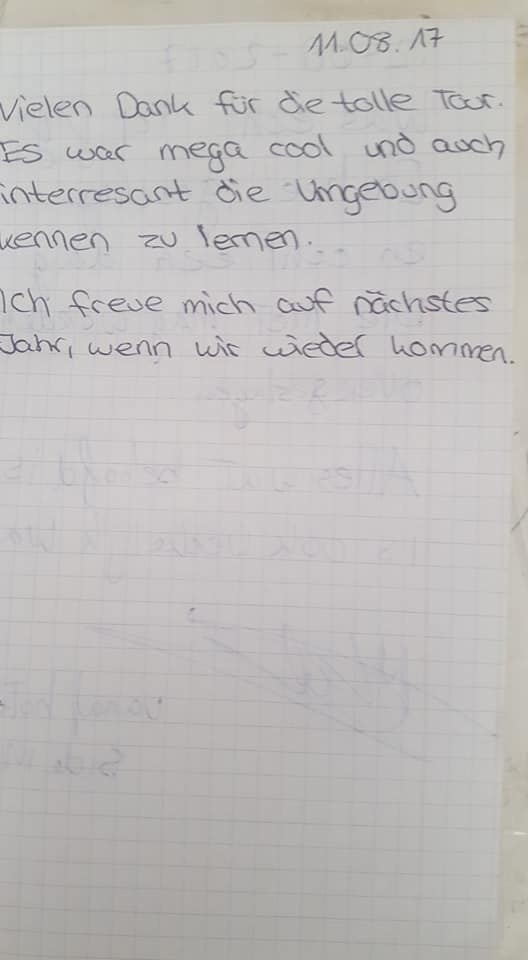 11.08.17
Vielen Dank für die tolle Tour.
Es war mega cool und auch
interresant die Umgebung
kennen zu lernen.
Ich freue mich auf nächstes
Jahr, wenn wir wieder kommen.